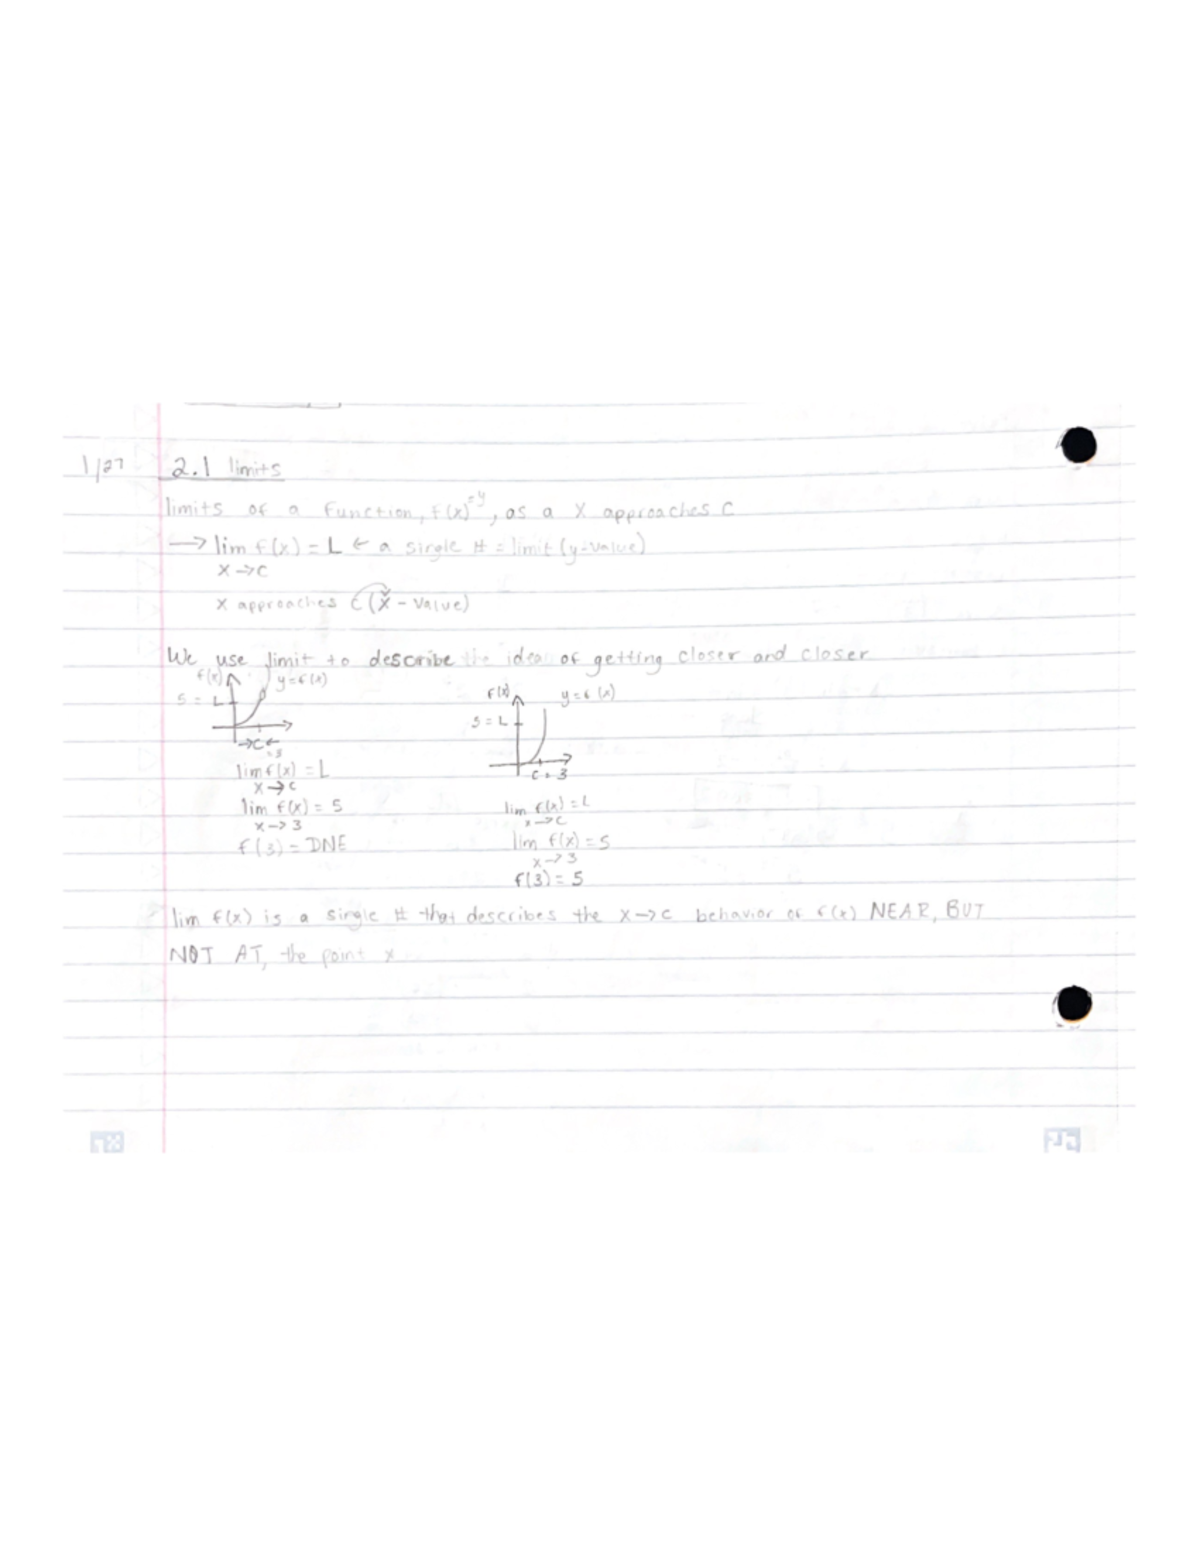 1/27 2.1 limits
limits of a function, f(x)=y, as a x approaches c
→ lim f(x) = L ← a single # = limit (y-value)
x→c
x approaches c (x-value)
We use limit to describe the idea of getting closer and closer
f(x) y=f(x)
5 = L
→c←
=3
lim f(x) = L
x→c
lim f(x) = 5
x→3
f(3) = DNE
f(x) y=f(x)
5 = L
c = 3
lim f(x) = L
x→c
lim f(x) = 5
x→3
f(3) = 5
lim f(x) is a single # that describes the x→c behavior of f(x) NEAR, BUT
NOT AT, the point x